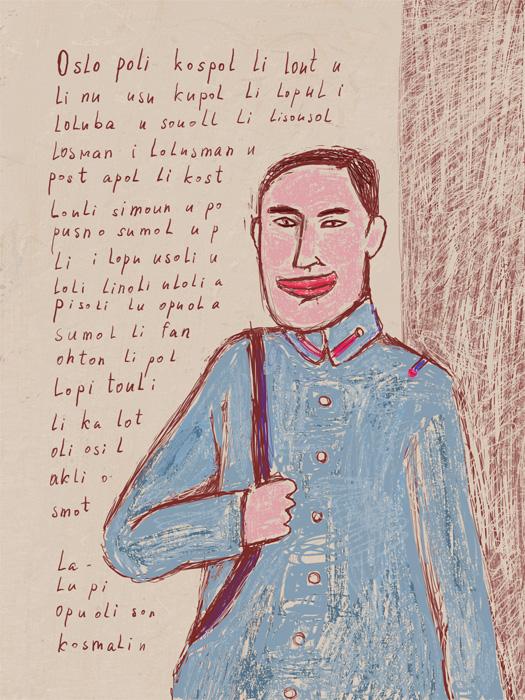 Oslo poli kospol li lout u
li nu usu kupol li lopul i
loluba u souoll li lisousol
losman i lolusman u
post apol li kost
Louli simoun u po
pusno sumol u p
li i lopu usoli u
loli linoli uloli a
pisoli lu opuol a
sumol li fan
ohton li pol
Lopi touli
li ka lot
oli osi l
akli o
smot
La-
Lu pi
opuoli son
kosmalin